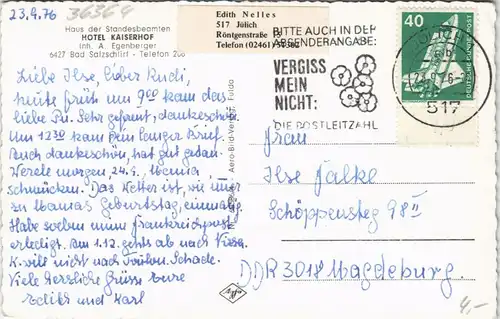 23.9.76
36364
Haus der Standesbeamten
HOTEL KAISERHOF
Inh. A. Egenberger
6427 Bad Salzschlirf - Telefon 206
Edith Nelles
517 Jülich
Röntgenstraße
Telefon (02461)
BITTE AUCH IN DER
ABSENDERANGABE:
VERGISS
MEIN
NICHT:
DIE POSTLEITZAHL
517
40
DEUTSCHE BUNDESPOST
Liebe Ilse, lieber Rudi,
heute früh um 9.00 kam das
liebe Pä. Sehr gefreut, dankeschön.
Um 12.30 kam Dein langer Brief.
Auch dankeschön, hat gut getan.
Werde morgen, 24.9. Mamia
schmücken. Das Wetter ist, wie immer
zu Mamas Geburtstag, einmalig.
Habe soeben mein Frankreichpost
erledigt. Am 1.12. gehts ab nach
K. will nicht nach Toulon. Schade.
Viele herzliche Grüsse Eure
Edith und Karl
Aero-Bild-Verlag, Fulda
Agfa
Frau
Ilse Falke
Schöppensteg 98 II
DDR 3018 Magdeburg.
4,-